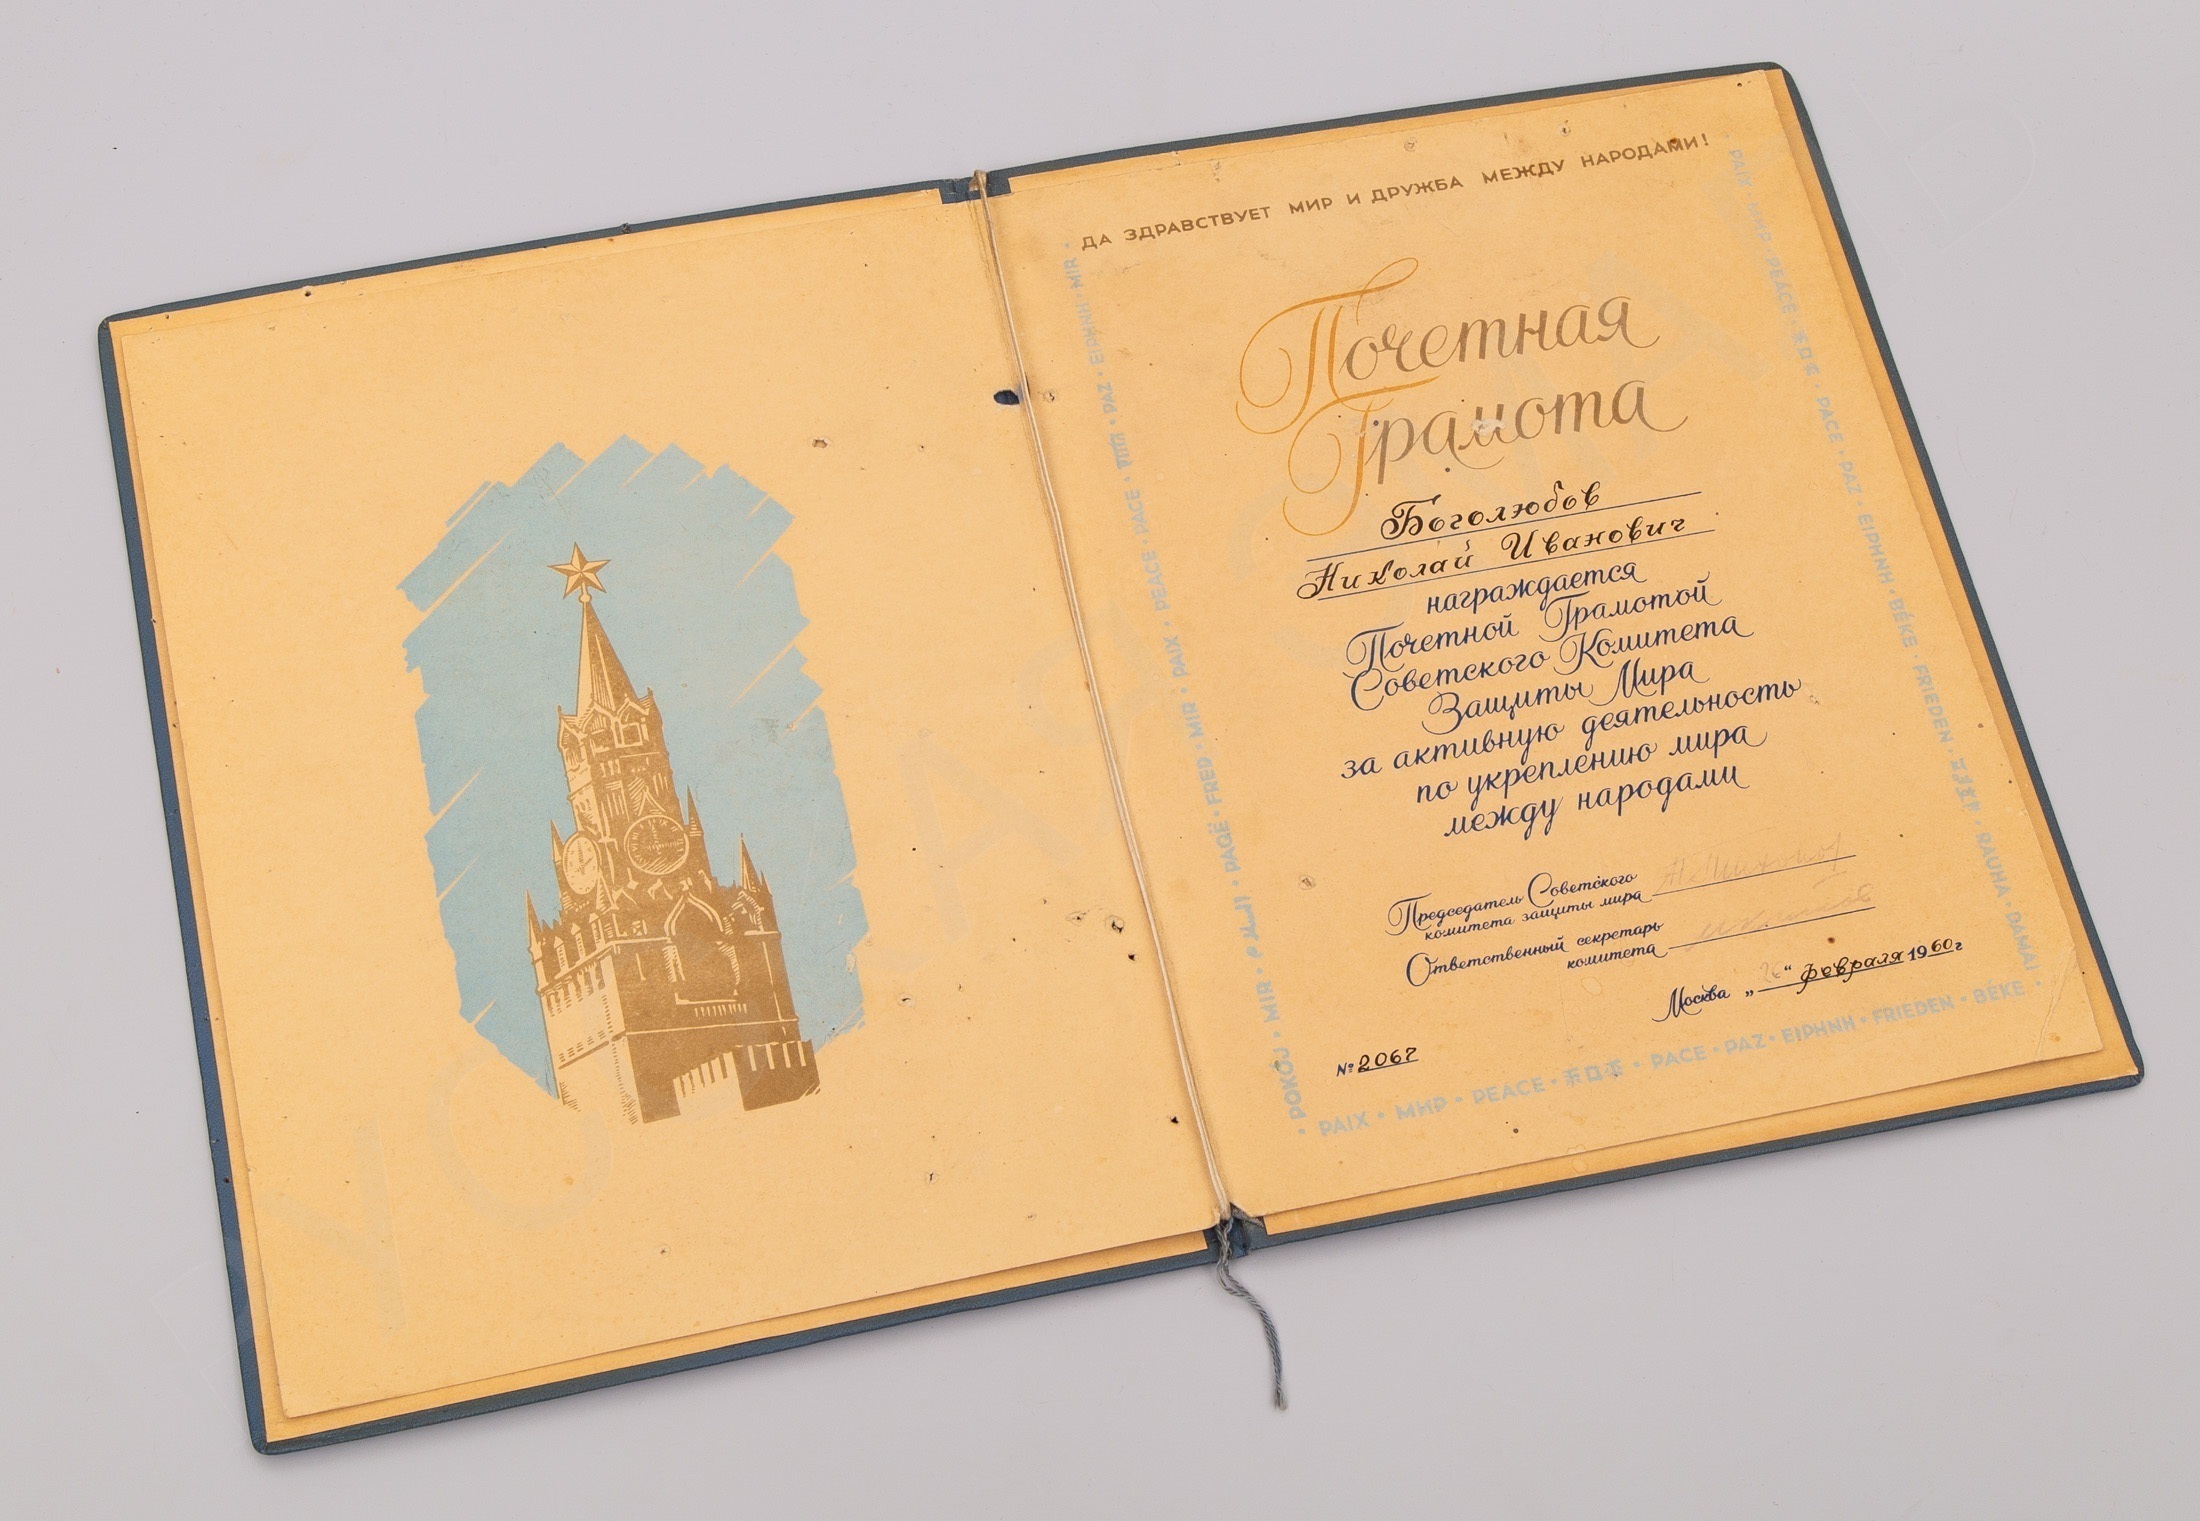 ДА ЗДРАВСТВУЕТ МИР И ДРУЖБА МЕЖДУ НАРОДАМИ!
Почетная
Грамота
Боголюбов
Николай Иванович
награждается
Почетной Грамотой
Советского Комитета
Защиты Мира
за активную деятельность
по укреплению мира
между народами
Председатель Советского
комитета защиты мира Н. Тихонов
Ответственный секретарь
комитета
Москва „26“ февраля 1960 г
№ 2067
· POKÓJ · MIR · PAQË · FRED · MIR · PAIX · PEACE · PACE · PAZ · ΕΙΡΗΝΗ · MIR ·
PAIX · МИР · PEACE · 和平 · PACE · PAZ · ΕΙΡΗΝΗ · BÉKE · FRIEDEN · RAUHA · DAMAI
· PAIX · МИР · PEACE · 和平 · PACE · PAZ · ΕΙΡΗΝΗ · FRIEDEN · BÉKE ·